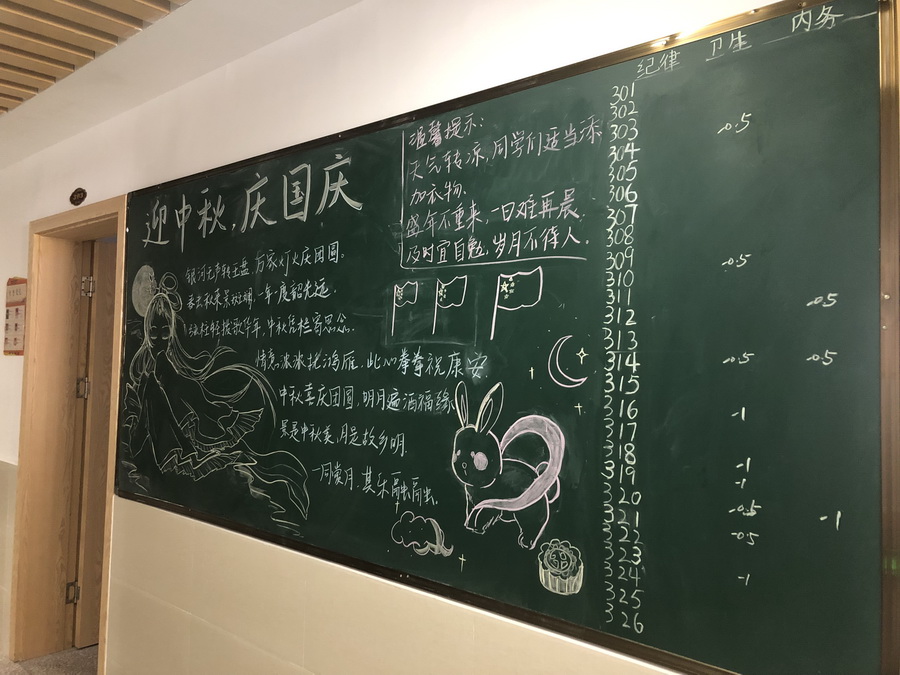 迎中秋,庆国庆
银河无声转玉盘,万家灯火庆团圆。
中秋
情意浓浓托鸿雁,此心拳拳祝康安
中秋喜庆团圆,明月遍洒福缘
景是中秋美,月是故乡明.
一同赏月,其乐融融.
温馨提示:
天气转凉,同学们适当添
加衣物.
盛年不重来,一日难再晨.
及时宜自勉,岁月不待人.
纪律 卫生 内务
301
302
303 -0.5
304
305
306
307
308
309 -0.5
310
311 -0.5
312
313
314 -0.5 -0.5
315
316 -1
317
318 -1
319 -1
320 -0.5
321 -0.5 -1
322
323 -1
324
325
326